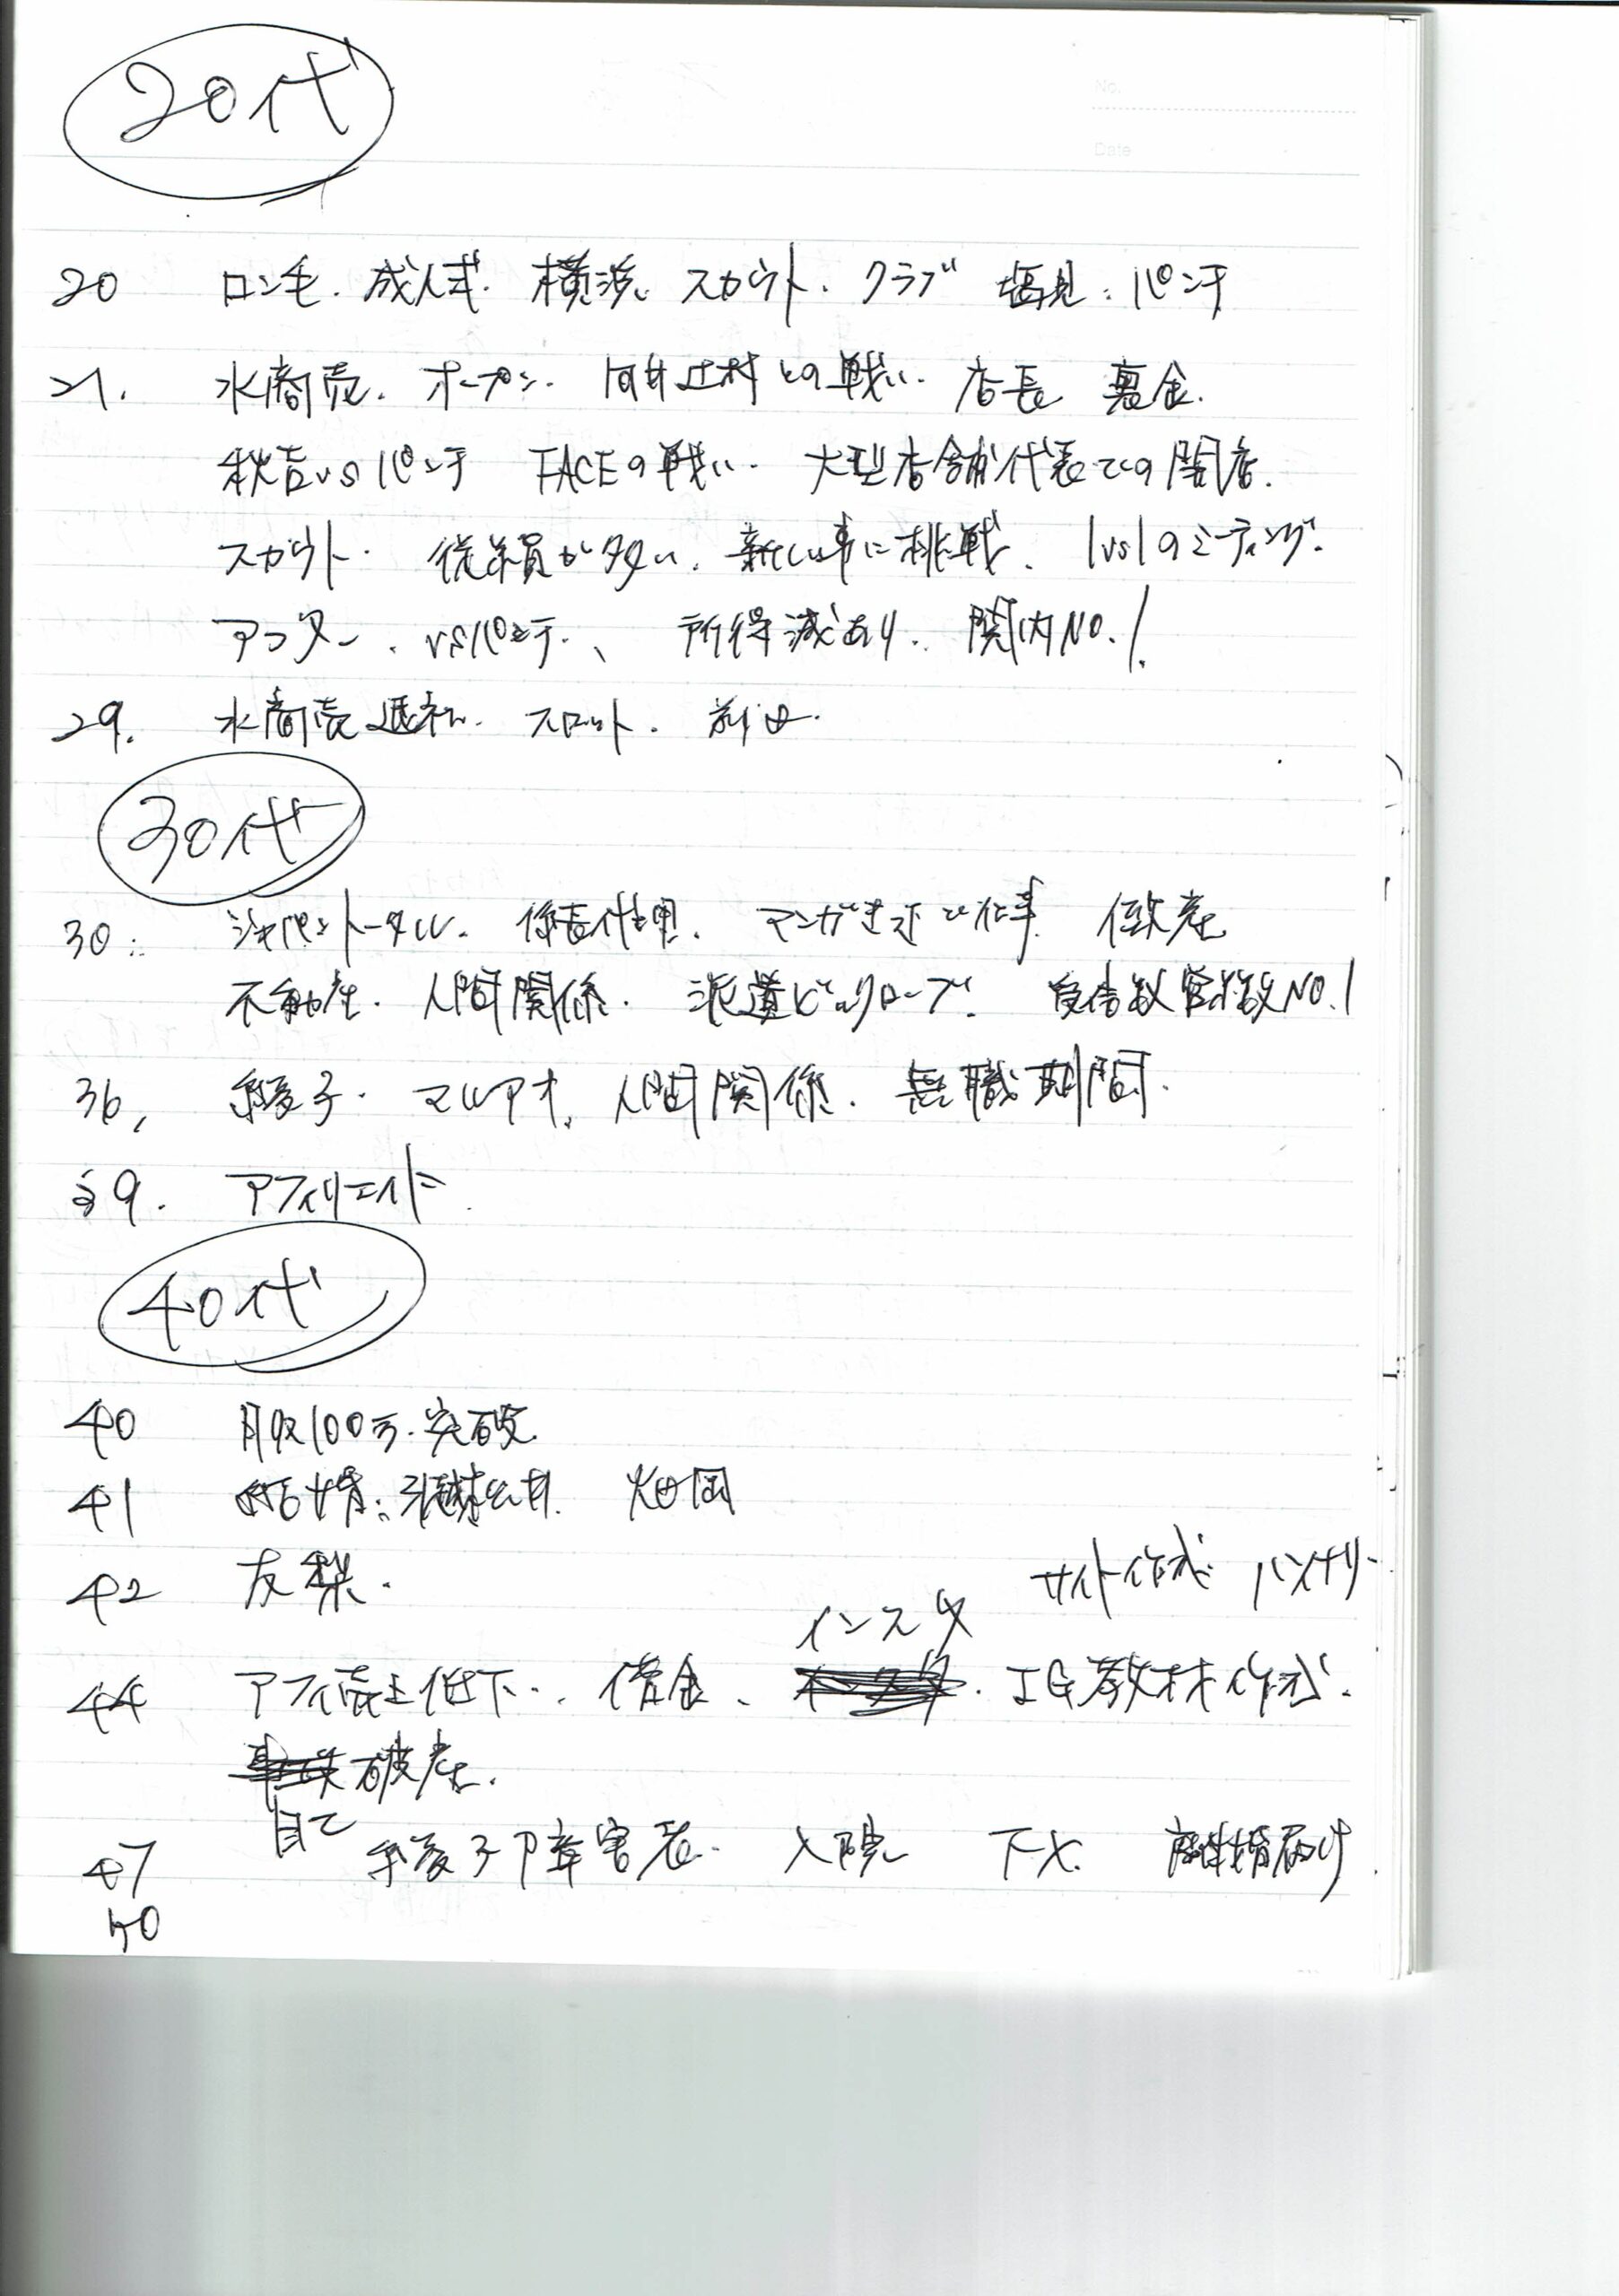 20代
No.
Date
20 ロン毛. 成人式. 横浜. スカウト. クラブ 塩見. パンチ
21. 水商売. オープン. 向井辻村との戦い. 店長 裏金.
秋吉vsパンチ FACEの戦い. 大型店舗代表での開店.
スカウト. 従業員が多い. 新しい事に挑戦. 1vs1のミーティング.
アフター. vsパンチ. 所得減あり. 関内NO.1.
29. 水商売退社. スロット.
30代
30. ジャパントータル. 係長代理. マンガ 仕事
不動産. 人間関係. 派遣 ビックローブ. 受注数 NO.1
36. 綾子. マルアオ. 人間関係. 無職期間.
39. アフィリエイト.
40代
40 月収100万. 突破.
41 結婚. 引越 畑岡
42 友梨.
サイト作成 ハンナリー
インスタ
44 アフィ売上低下. 借金. IG教材作成.
破産.
47 綾子障害者. 入院 離婚届け.
50